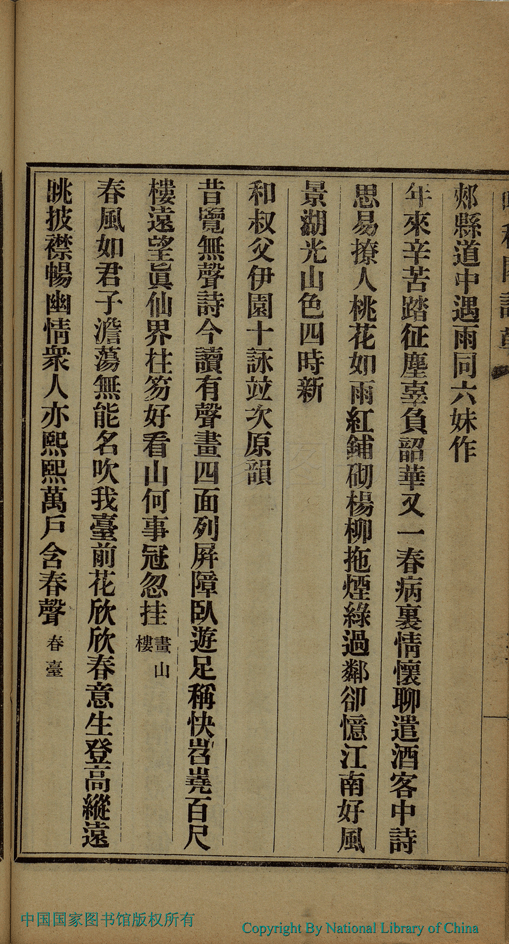 郟縣道中遇雨同六妹作
年來辛苦踏征塵辜負韶華又一春病裏情懷聊遣酒客中詩
思易撩人桃花如雨紅鋪砌楊柳拖煙綠過鄰卻憶江南好風
景湖光山色四時新
和叔父伊園十詠竝次原韻
昔覽無聲詩今讀有聲畫四面列屏障臥遊足稱快岧嶤百尺
樓遠望眞仙界柱笏好看山何事冠忽挂 畫山樓
春風如君子澹蕩無能名吹我臺前花欣欣春意生登高縱遠
眺披襟暢幽情衆人亦熙熙萬戶含春聲 春臺
中国国家图书馆版权所有
Copyright By National Library of China